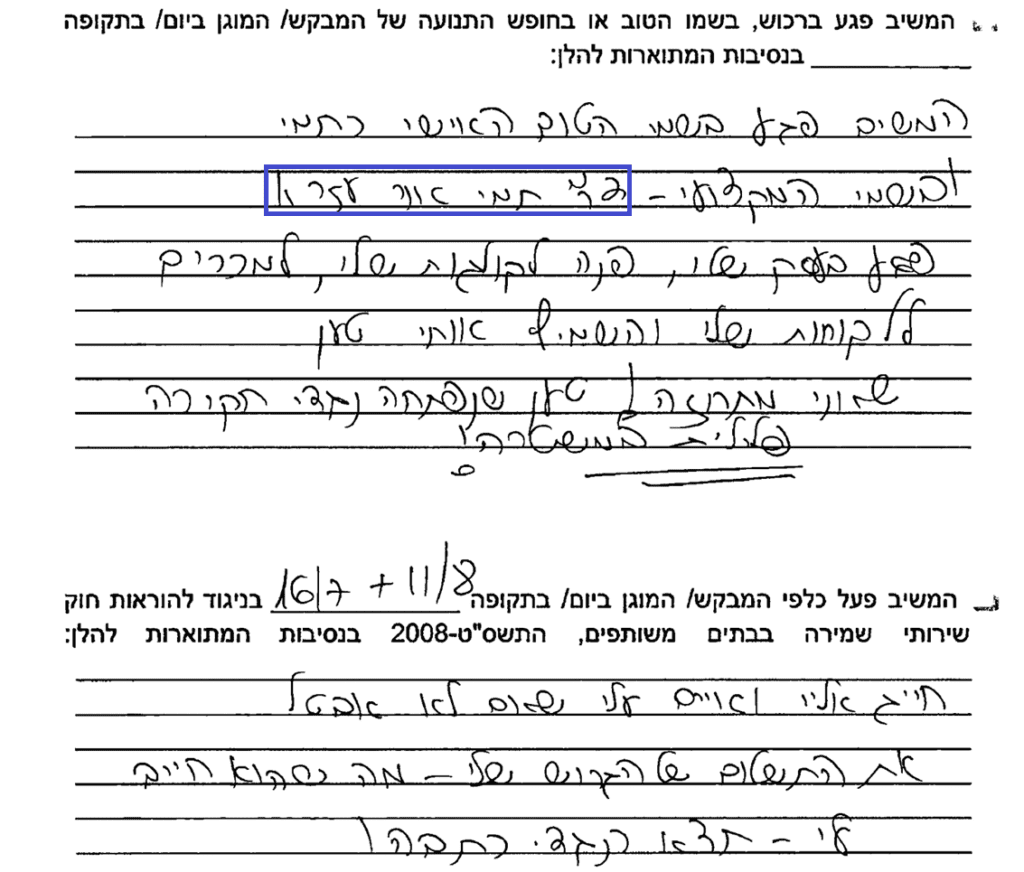 המשיב פגע ברכוש, בשמו הטוב או בחופש התנועה של המבקש/ המוגן ביום/ בתקופה
____________ בנסיבות המתוארות להלן:
המשיב פגע בשמי הטוב האישי כתמי
ובשמי המקצועי - תמי אור עזרא
פגע בעסק שלי, פנה לקולגות שלי, למכרים
ללקוחות שלי והשמיץ אותי טען
שאני מתחזה! טען שנפתחה נגדי חקירה
פלילית במשטרה!
המשיב פעל כלפי המבקש/ המוגן ביום/ בתקופה 16/7 + 11/8 בניגוד להוראות חוק
שירותי שמירה בבתים משותפים, התשס"ט-2008 בנסיבות המתוארות להלן:
חייג אליי ואיים עלי שאם לא אבטל
את התשלום של הגרוש שלי - מה שהוא חייב
לי - תצא כנגדי כתבה!